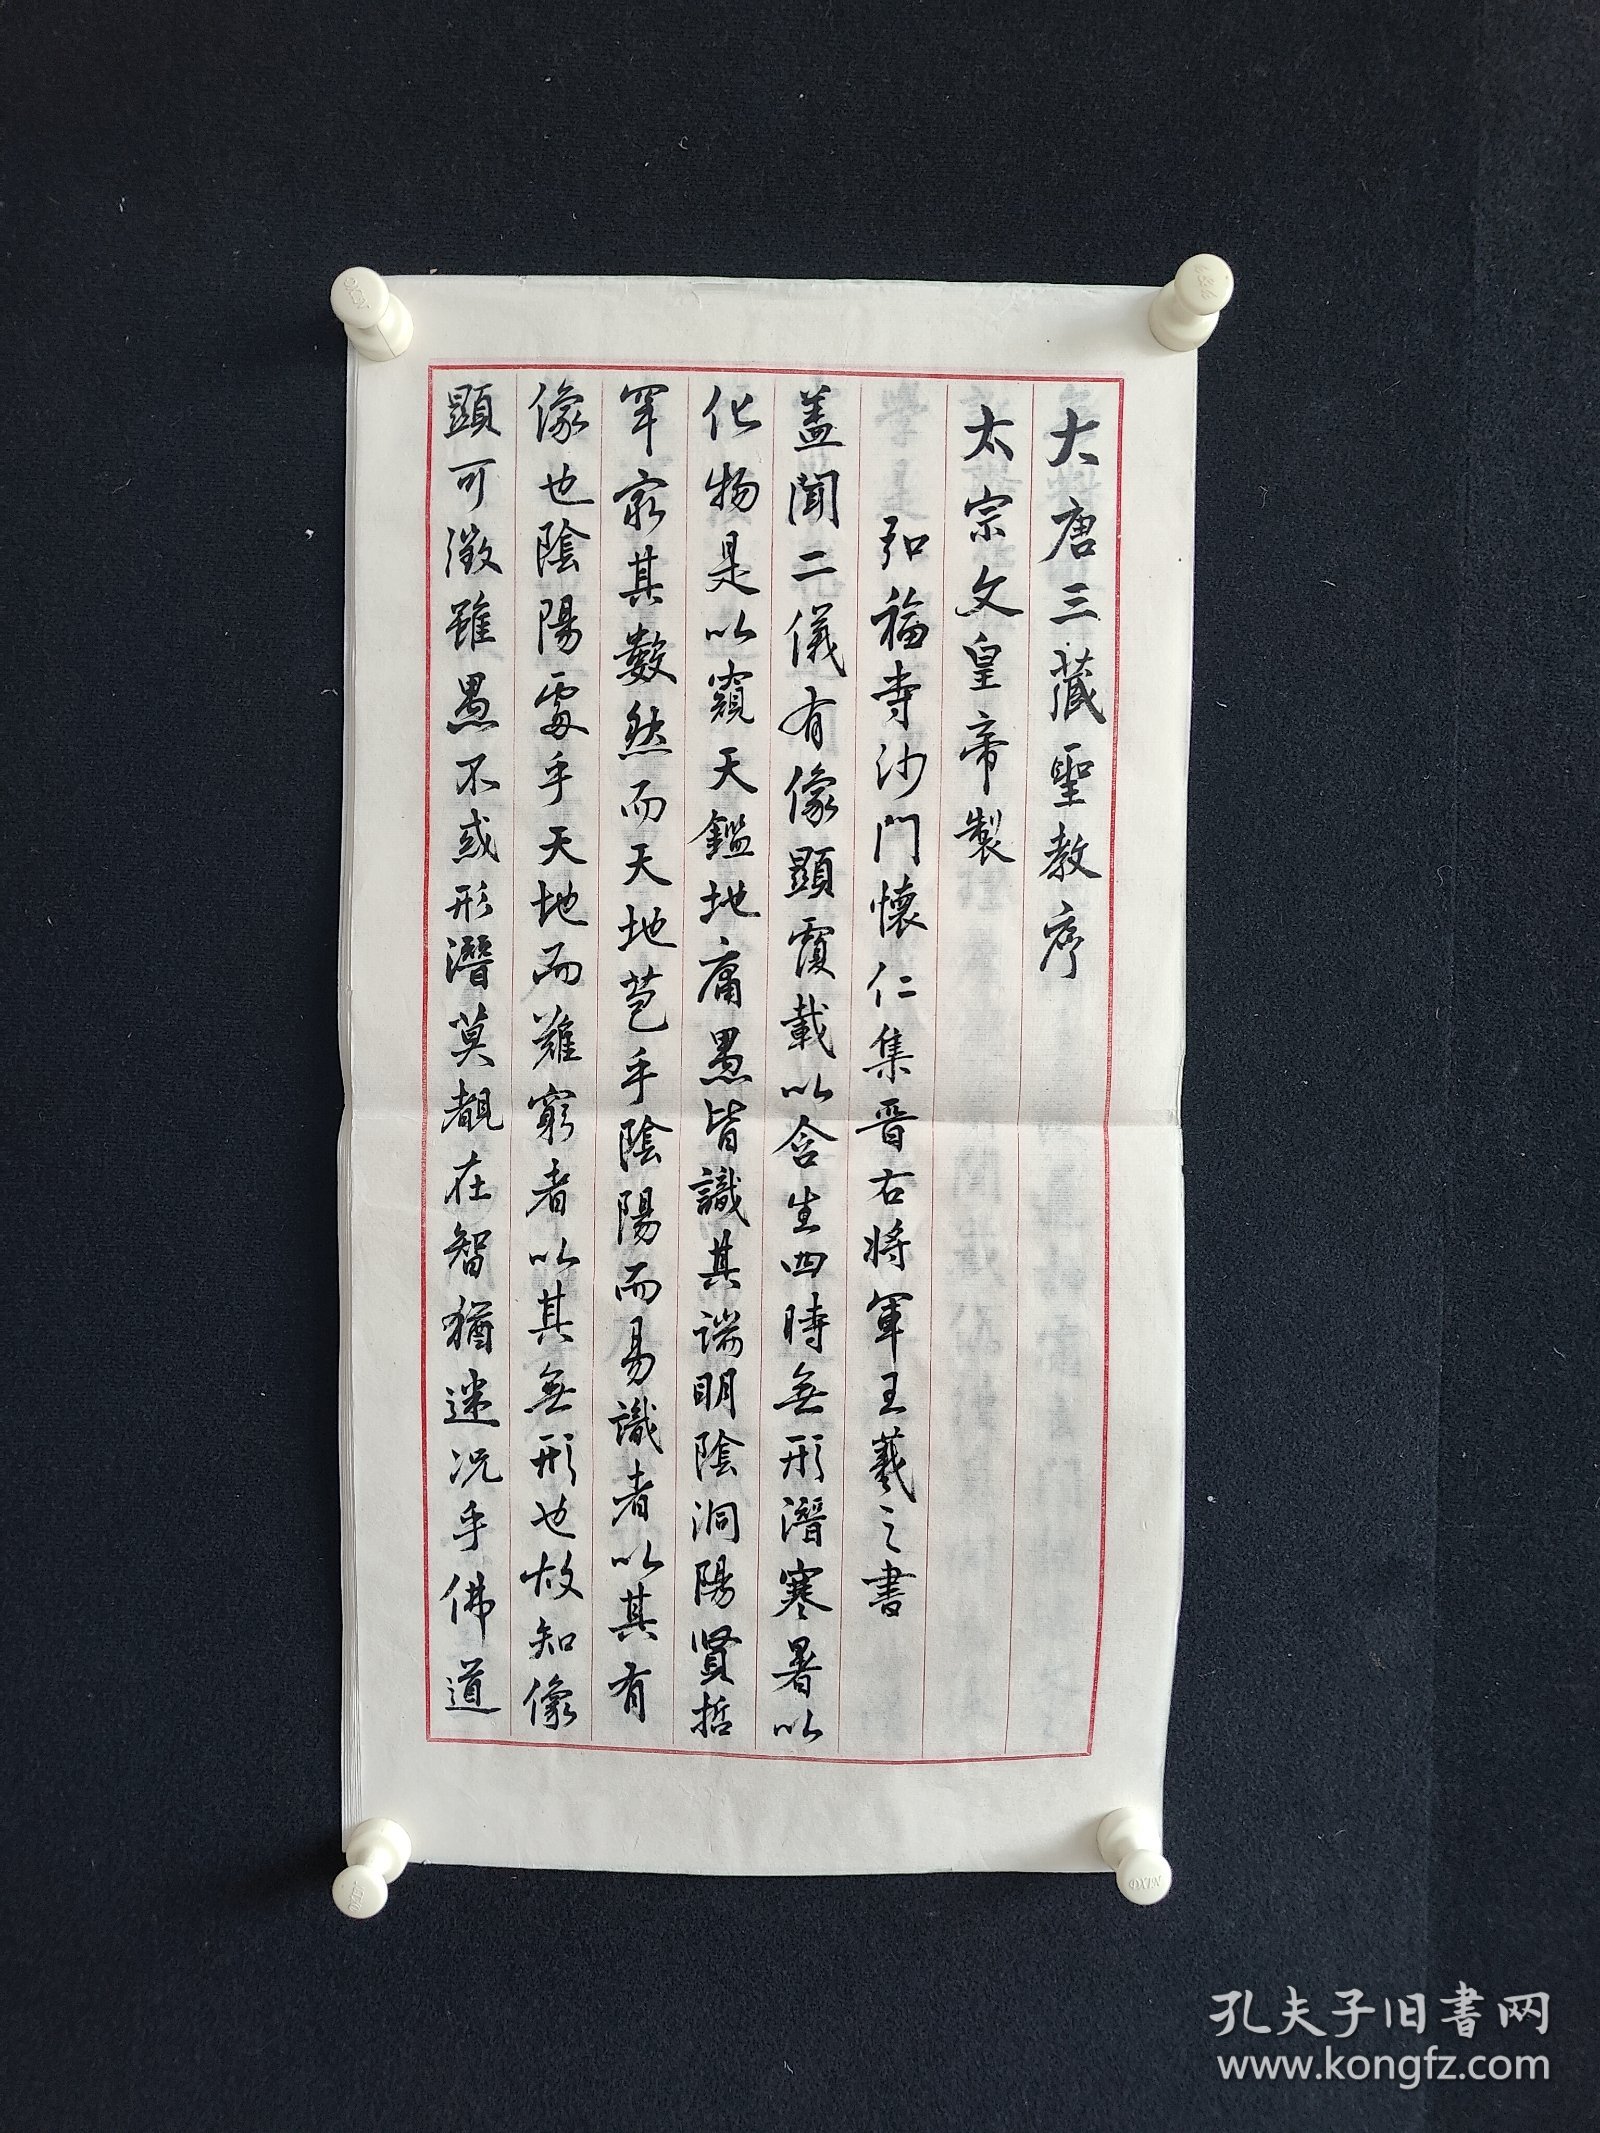 大唐三藏聖教序
太宗文皇帝製
弘福寺沙門懷仁集晉右將軍王羲之書
盖聞二儀有像顯覆載以含生四時無形潛寒暑以
化物是以窺天鑑地庸愚皆識其端明陰洞陽賢哲
罕窮其數然而天地苞乎陰陽而易識者以其有
像也陰陽處乎天地而難窮者以其無形也故知像
顯可徵雖愚不惑形潛莫覩在智猶迷况乎佛道
孔夫子旧书网
www.kongfz.com